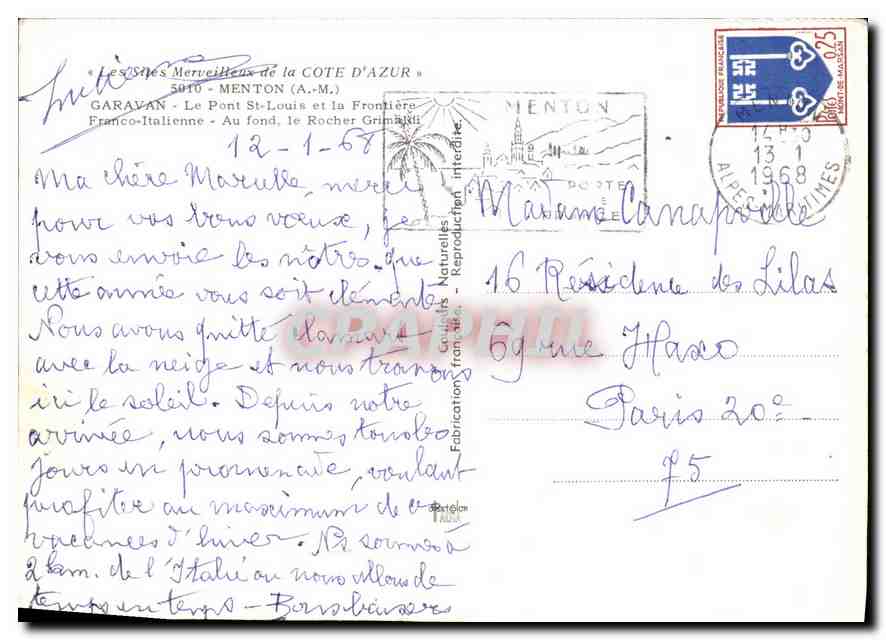 « Les Sites Merveilleux de la COTE D'AZUR »
5010 - MENTON (A.-M.)
GARAVAN - Le Pont St-Louis et la Frontière
Franco-Italienne - Au fond, le Rocher Grimaldi
12-1-68
Ma chère Marcelle, merci
pour vos bons voeux, je
vous envoie les nôtres. que
cette année vous soit clémente
Nous avons quitté Clamart
avec la neige et nous trouvons
ici le soleil. Depuis notre
arrivée, nous sommes tous les
jours en promenade, voulant
profiter au maximum de ces
vacances d'hiver. Ns sommes à
2 km. de l'Italie ou nous allons de
temps en temps - Bons baisers
Couleurs Naturelles
Fabrication française. - Reproduction interdite.
MENTON
REPUBLIQUE FRANÇAISE
0,25
MONT-DE-MARSAN
13-1
1968
ALPES MARITIMES
Madame Canapville
16 Résidence des Lilas
69 rue Haxo
Paris 20e
75
CPAPHIL